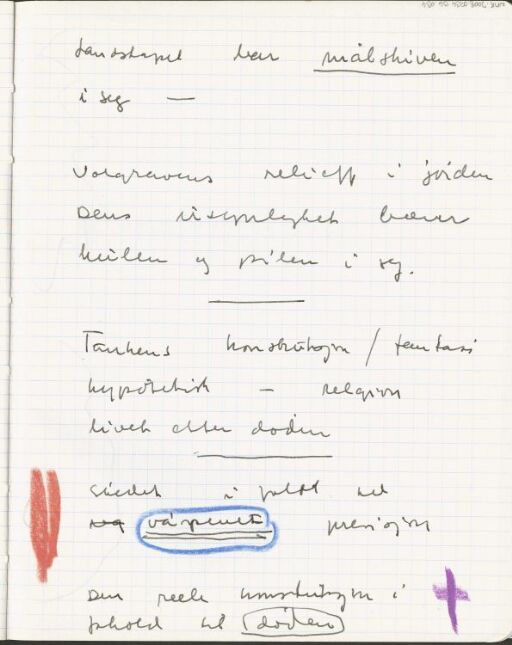 Landskapet bær målskiven
i seg —
Volgravens relieff i jorden
Dens usynlighet bærer
kulen og pilen i seg.
Tankens konstruksjon / fantasi
hypotetisk – religion
livet etter døden
Stedet i forhold til
våpenets presisjon
Den reele konstruksjon i
forhold til døden